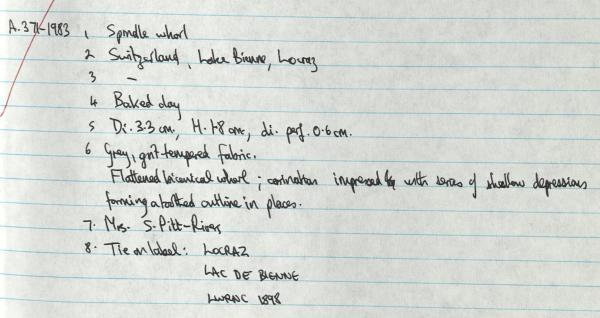 A.371-1983 1 Spindle whorl
2 Switzerland, Lake Bienne, Locraz
3 —
4 Baked clay
5 Di. 3.3 cm, H. 1.8 cm, di. perf. 0.6 cm.
6 Grey, grit-tempered fabric.
Flattened biconical whorl; carination impressed with series of shallow depressions
forming a toothed outline in places.
7. Mrs. S. Pitt-Rivers
8. Tie on label: LOCRAZ
LAC DE BIENNE
1898